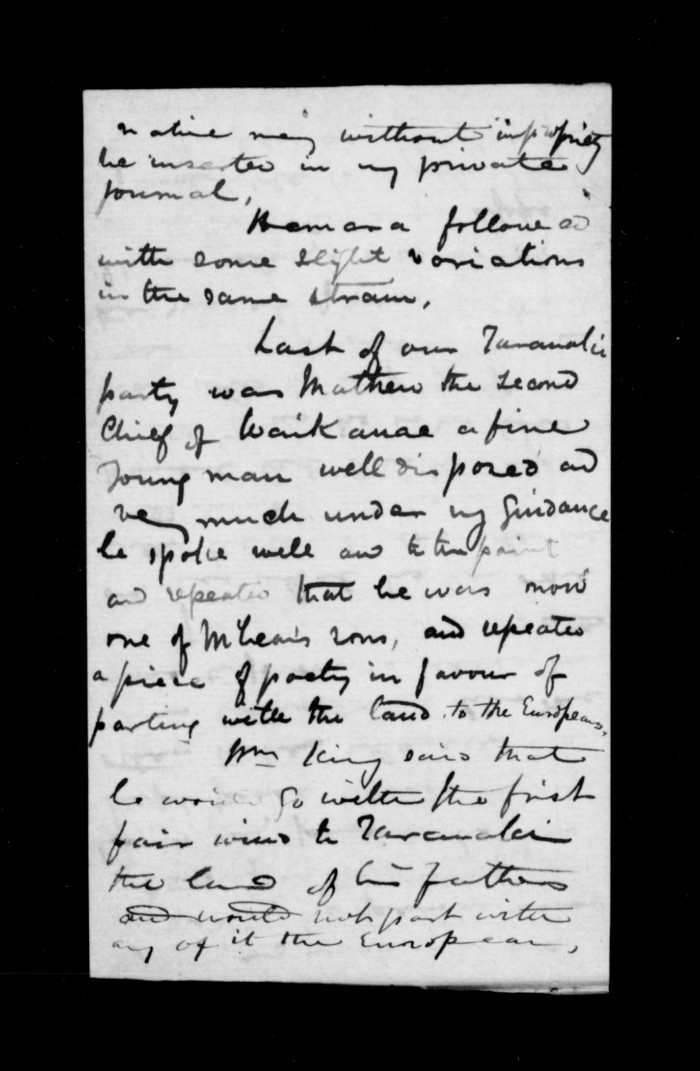 native may without impropriety
be inserted in my private
journal,
Hemara followed
with some slight variations
in the same strain,
Last of our Taranaki
party was Mathew the second
Chief of Waikanae a fine
young man well disposed and
very much under my guidance
he spoke well and to the point
and repeated that he was now
one of McLean's sons, and repeated
a piece of poetry in favour of
parting with the land to the Europeans,
Wm King said that
he would go with the first
fair wind to Taranaki
the land of his fathers
and would not part with
any of it the European,